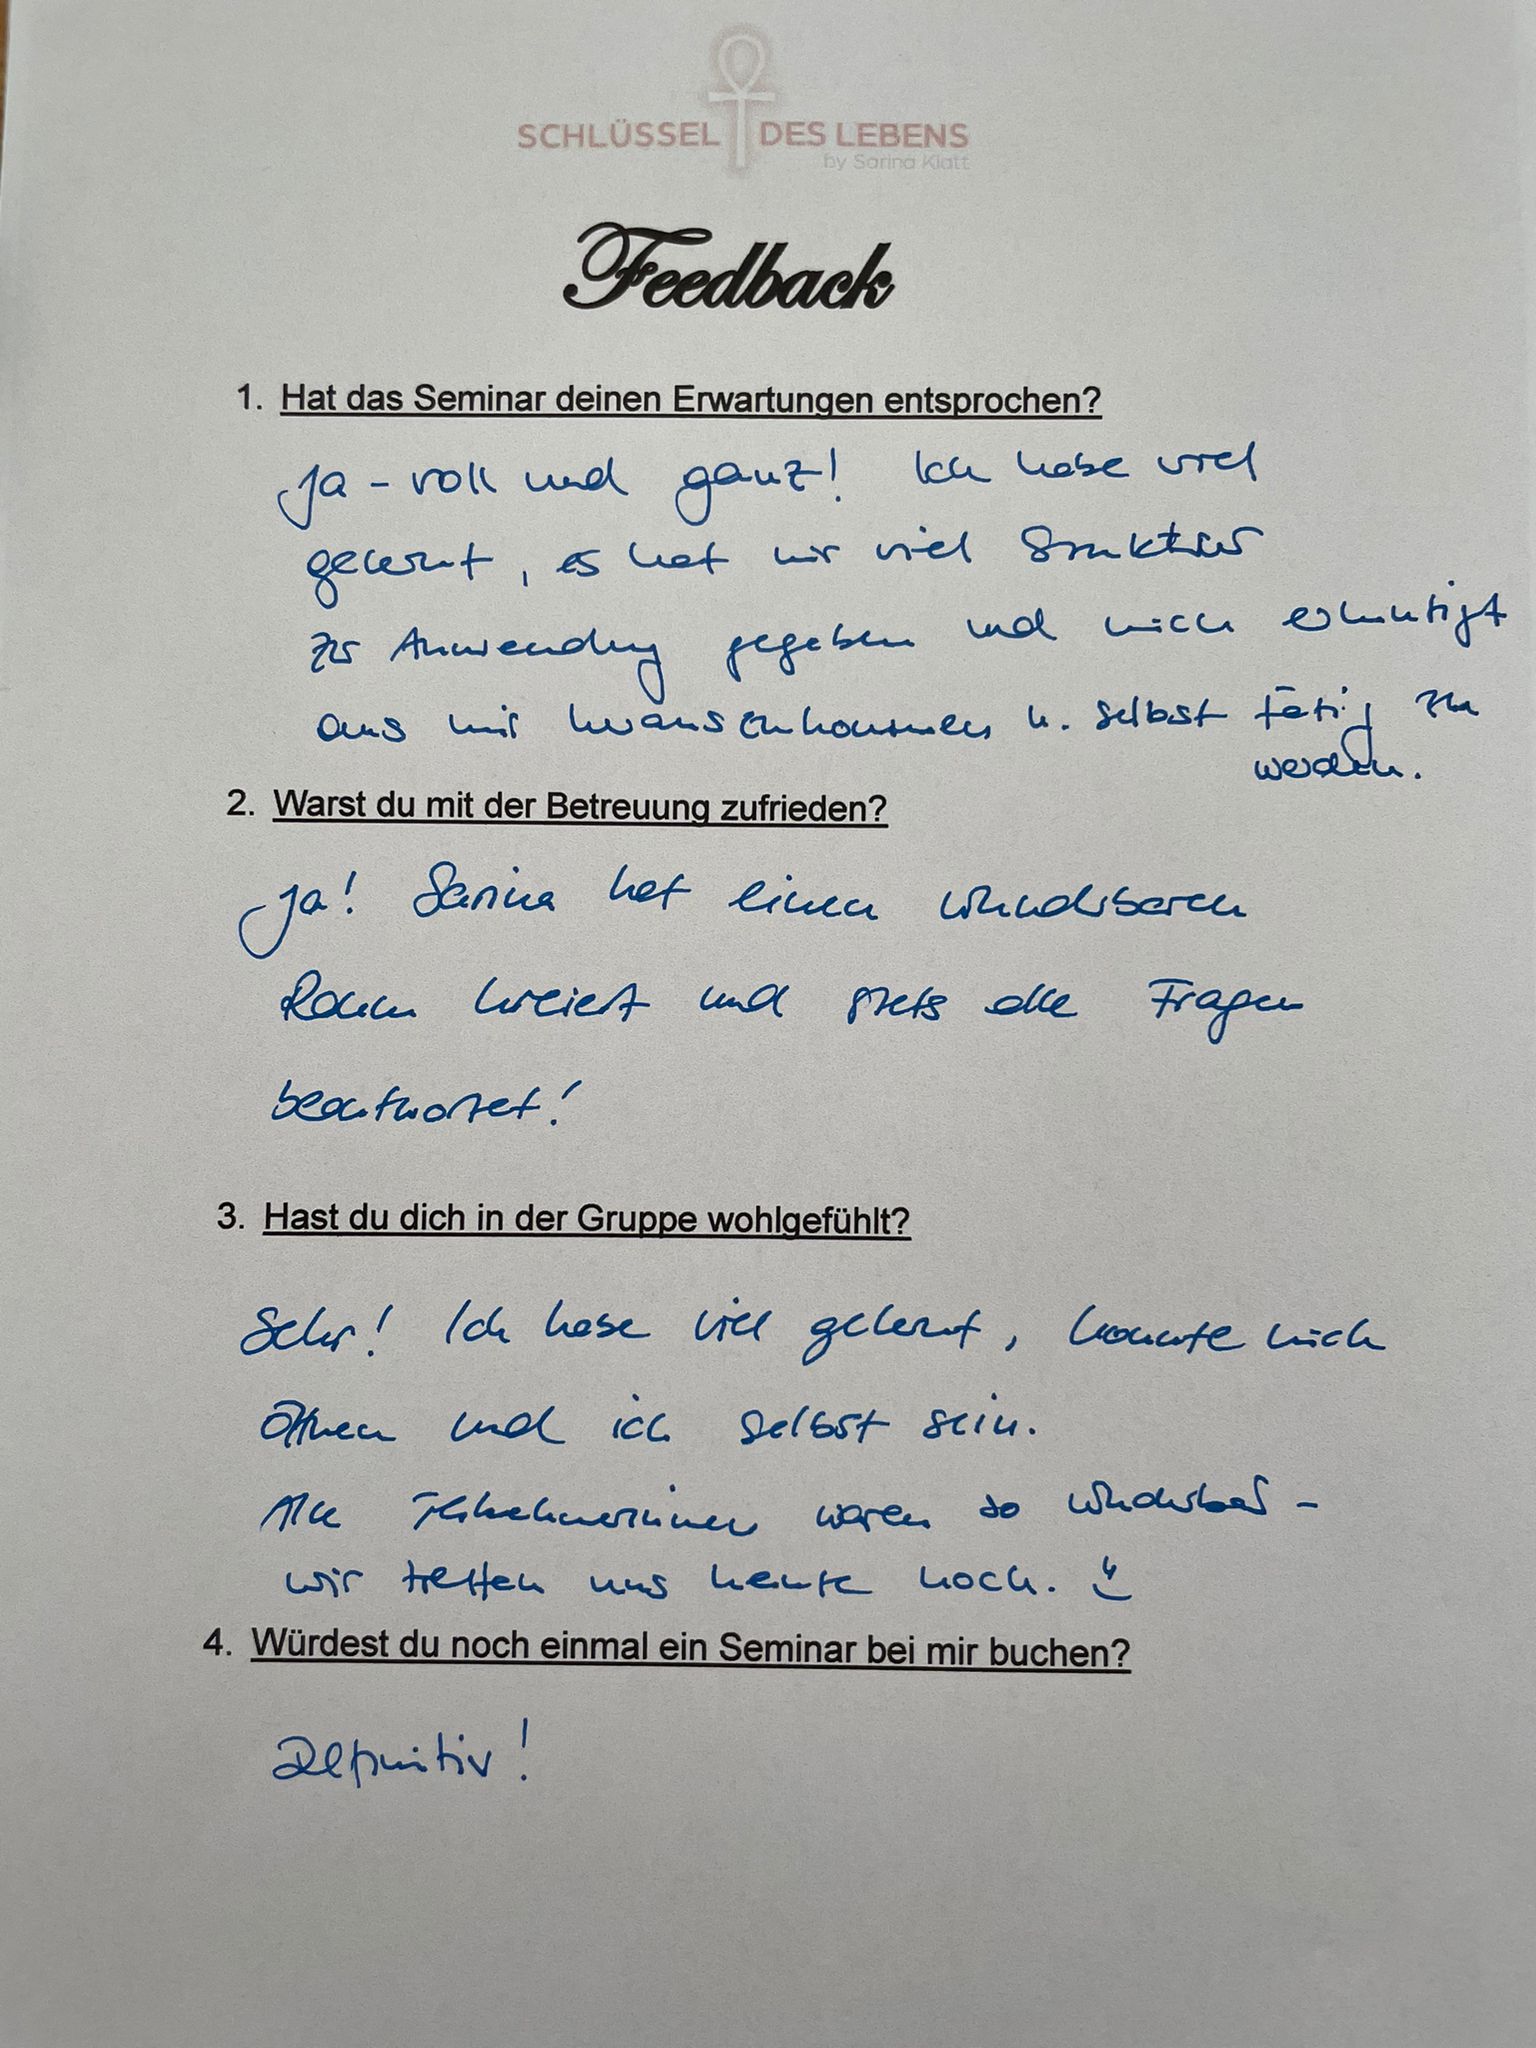 SCHLÜSSEL DES LEBENS
by Sarina Klatt
Feedback
1. Hat das Seminar deinen Erwartungen entsprochen?
Ja - voll und ganz! Ich habe viel
gelernt, es hat mir viel Struktur
zur Anwendung gegeben und mich ermutigt
aus mir herauszukommen u. selbst tätig zu
werden.
2. Warst du mit der Betreuung zufrieden?
Ja! Sarina hat einen wunderbaren
Raum kreiert und stets alle Fragen
beantwortet!
3. Hast du dich in der Gruppe wohlgefühlt?
Sehr! Ich habe viel gelernt, konnte mich
öffnen und ich selbst sein.
Alle Teilnehmerinnen waren so wunderbar -
wir treffen uns heute noch.
4. Würdest du noch einmal ein Seminar bei mir buchen?
Definitiv!